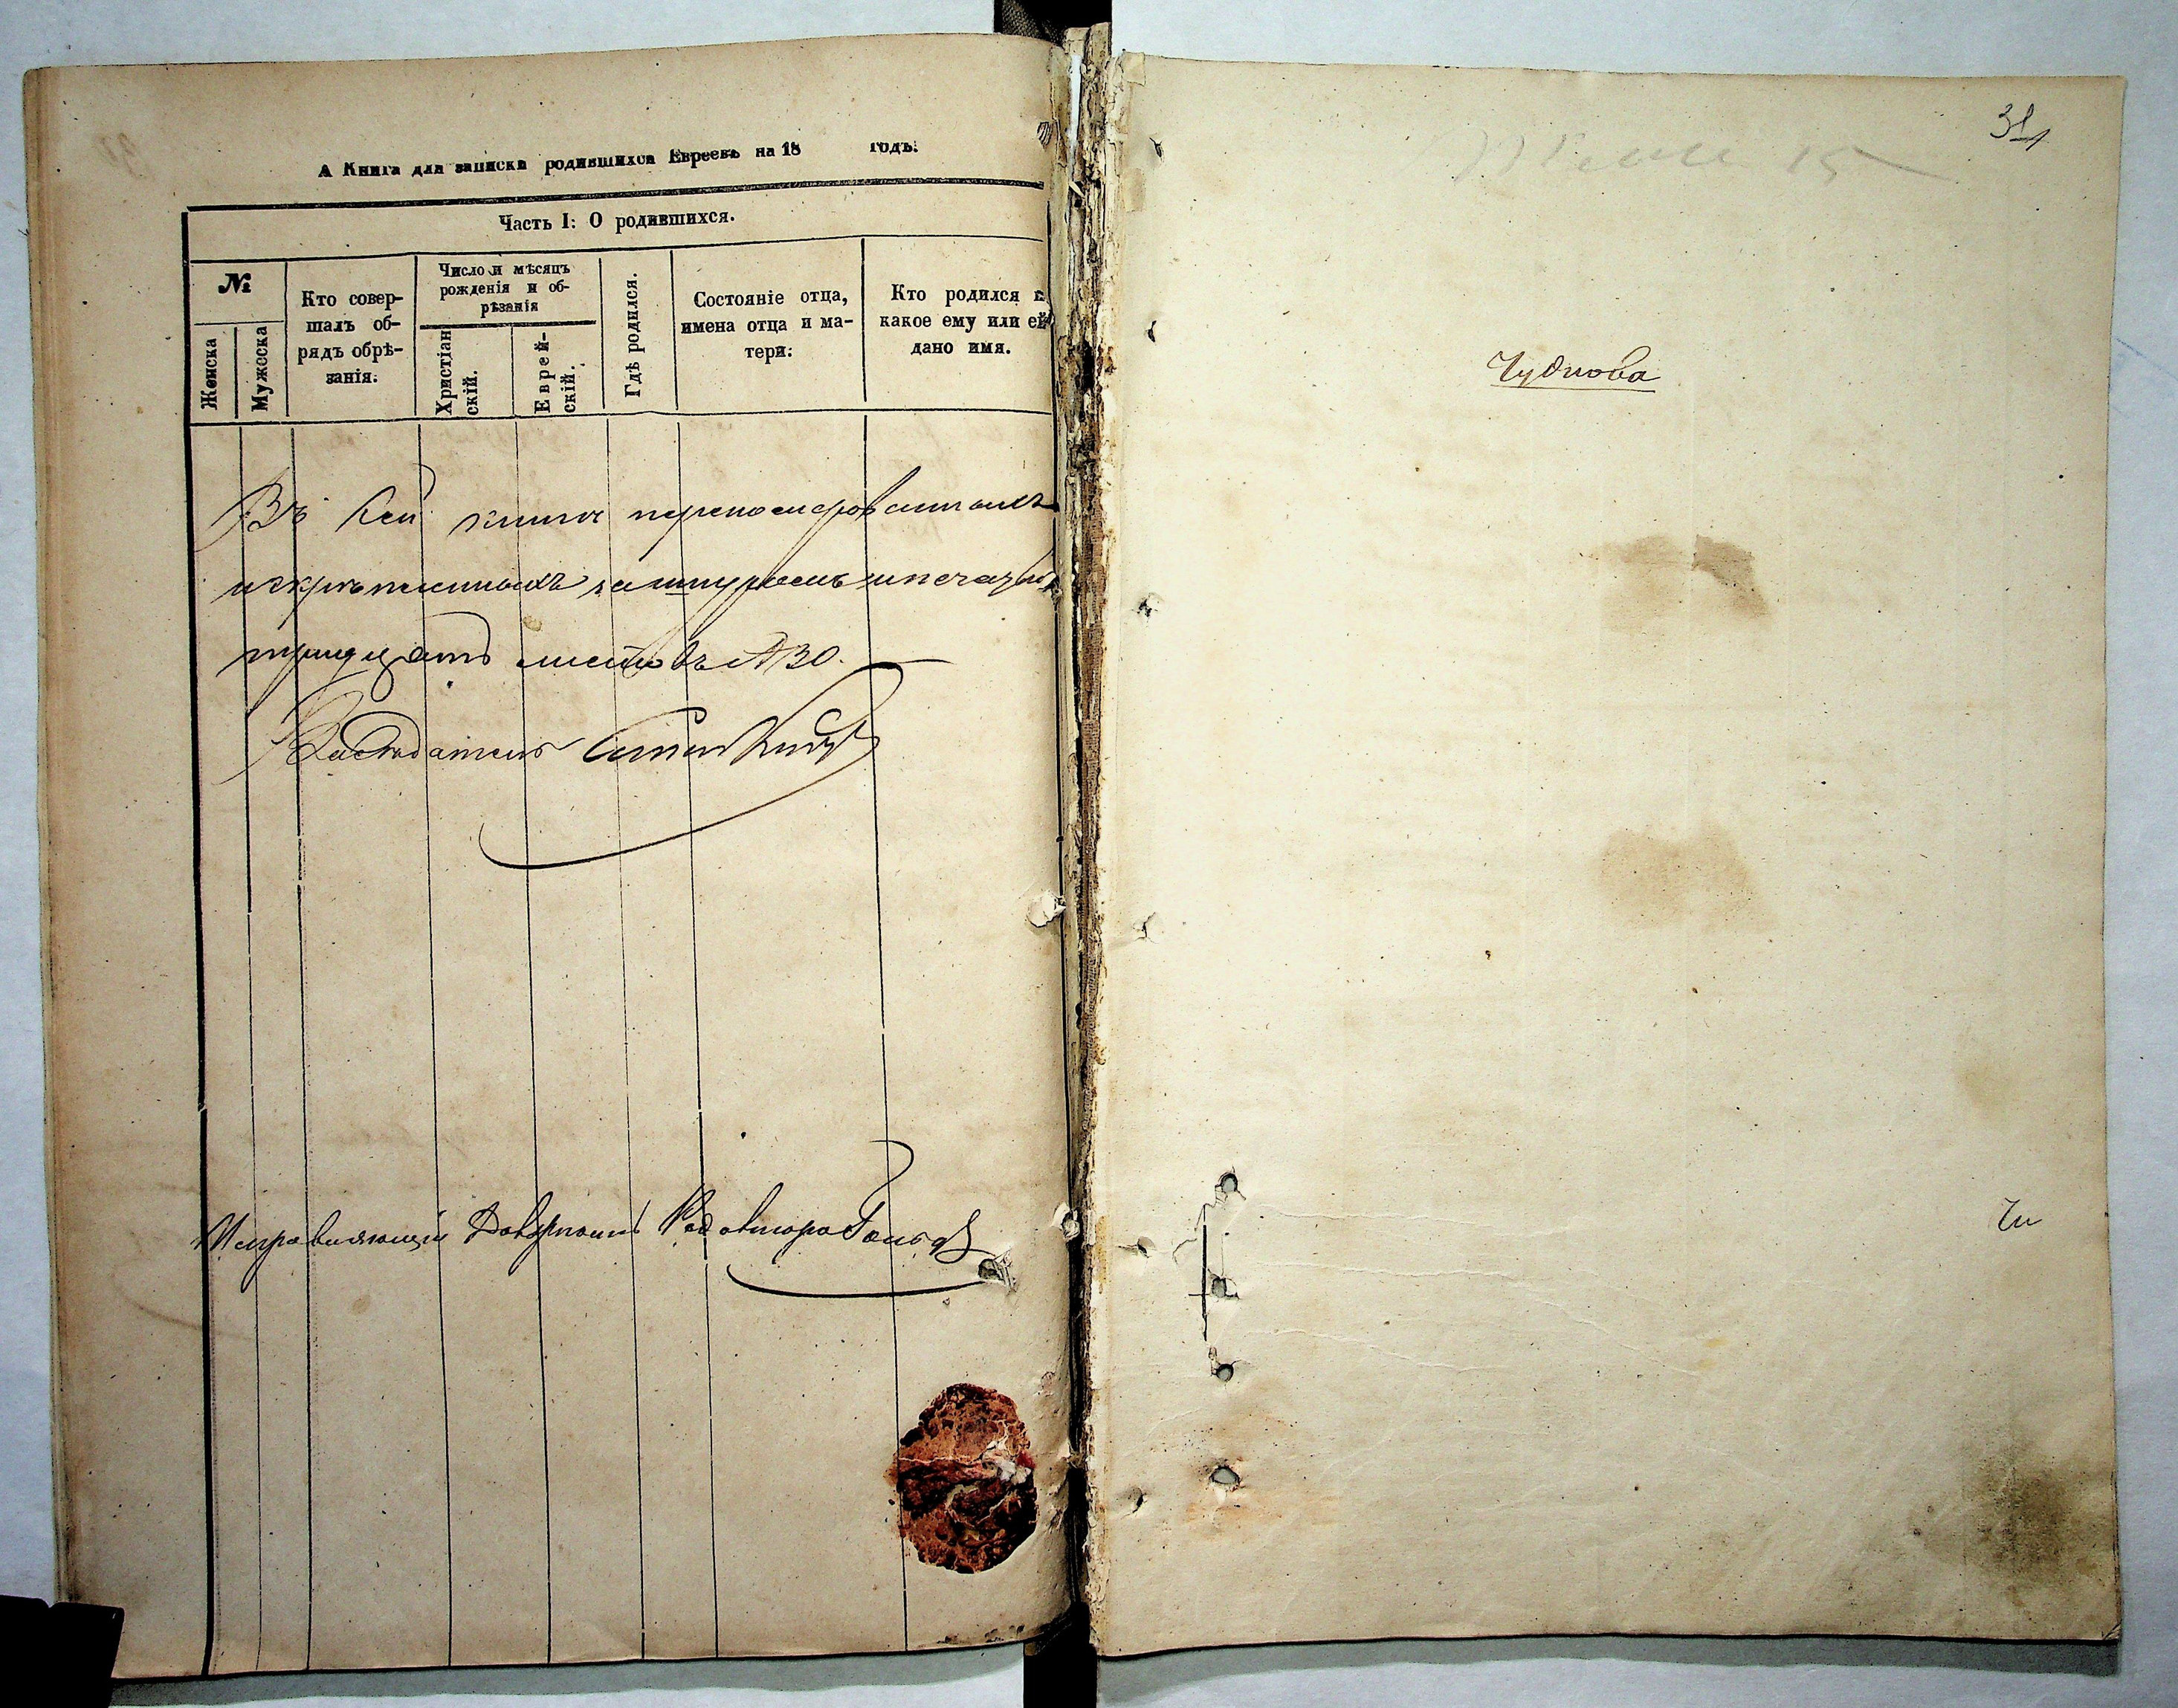 А Книга для записки родившихся Евреевъ на 18 годъ.
Часть I: О родившихся.
№
Женска
Мужеска
Кто совер-
шалъ об-
рядъ обрѣ-
занія.
Число и мѣсяцъ
рожденія и об-
рѣзанія
Христіан
скій.
Еврей-
скій.
Гдѣ родился.
Состояніе отца,
имена отца и ма-
тери.
Кто родился и
какое ему или ей
дано имя.
Въ сей книгѣ перенумерованныхъ
и скрѣпленныхъ за шнуромъ и печатью
тридцать листовъ № 30.
Засѣдатель
Исправляющій Должность
31
Чуднова
Чи